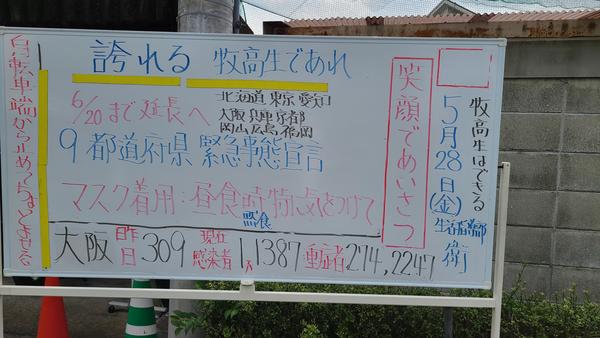 誇れる 牧高生であれ
6/20まで延長へ
北海道 東京 愛知
大阪 兵庫 京都
岡山 広島 福岡
9都道府県 緊急事態宣言
マスク着用:昼食時特に気をつけて
黙食
大阪 昨日 309 現在感染者 11,387人 重症者 274,2247
笑顔であいさつ
牧高生はできる
5月28日(金)
生活指導部
衛
自転車 端から止めて